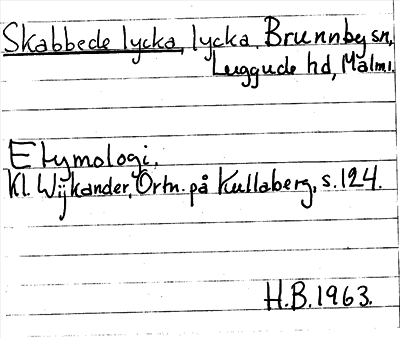 Skabbede lycka, lycka. Brunnby sn,
Luggude hd, Malm.
Etymologi.
Kl. Wijkander, Ortn. på Kullaberg, s. 124.
H.B. 1963.